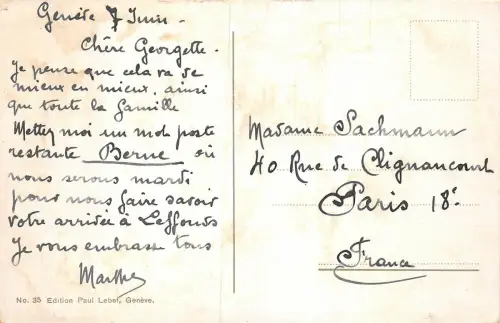 Genève 7 Juin -
Chère Georgette -
Je pense que cela va de
mieux en mieux, ainsi
que toute la famille
Mettez moi un mot poste
restante Berne où
nous serons mardi
pour nous faire savoir
votre arrivée à Leffonds
Je vous embrasse tous
Marthe
No. 35 Edition Paul Lebet, Genève.
Madame Sachmann
40 Rue de Clignancourt
Paris 18e
France